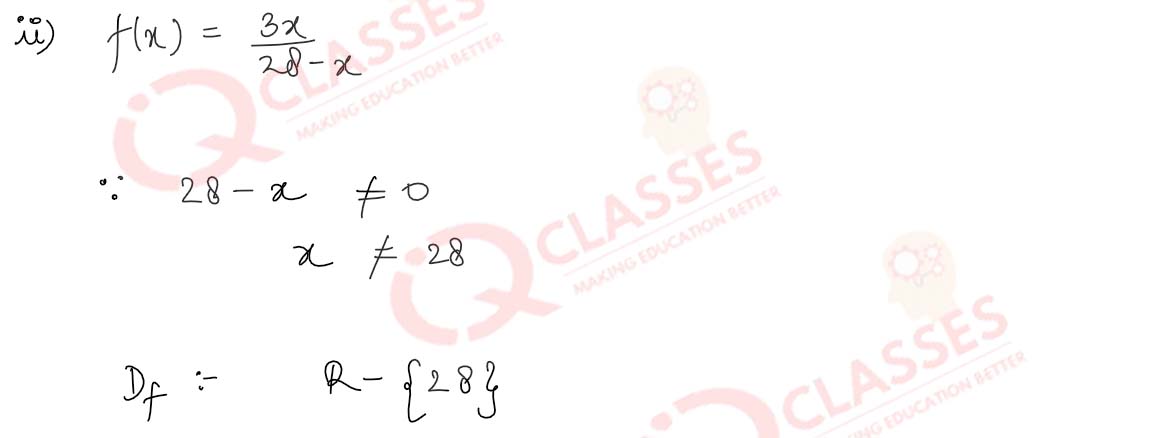 ii) f(x) = 3x / 28 - x
∵ 28 - x ≠ 0
x ≠ 28
Df :- R - {28}
iQ CLASSES
MAKING EDUCATION BETTER
iQ CLASSES
MAKING EDUCATION BETTER
iQ CLASSES
MAKING EDUCATION BETTER